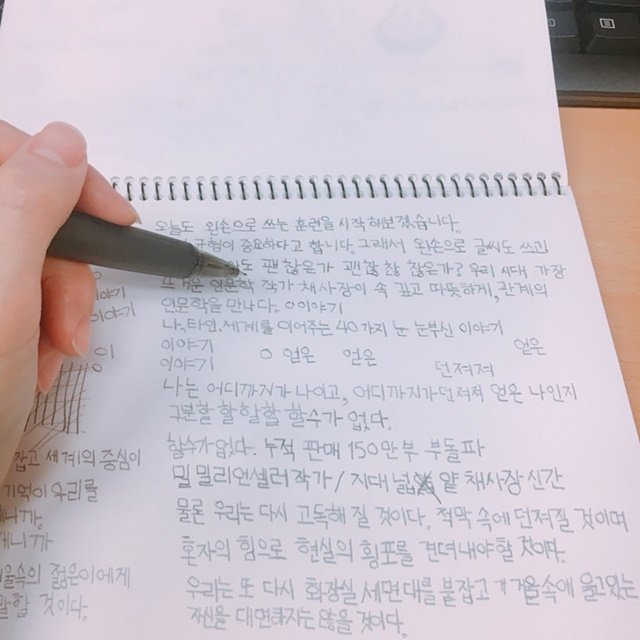 오늘도 왼손으로 쓰는 훈련을 시작해보겠습니다.
균형이 중요하다고 합니다. 그래서 왼손으로 글씨도 쓰고
도 괜찮은가 괜찮찮 찮은가? 우리 시대 가장
뜨거운 인문학 작가 채사장이 속 깊고 따뜻하게, 관계의
인문학을 만나다. 이야기
나, 타인, 세계를 이어주는 40가지 눈 눈부신 이야기
이야기 얻은 얻은 얻은
이야기 던져져
나는 어디까지가 나이고, 어디까지가 던져져 얻은 나인지
구분할 할 할 할 할 수가 없다.
할수가 없다. 누적 판매 150만부 부돌파
밀 밀리언셀러 작가 / 지대넓 얕 채사장 신간
물론 우리는 다시 고독해 질 것이다. 적막 속에 던져질 것이며
혼자의 힘으로 현실의 횡포를 견뎌내야할 것이다.
우리는 또 다시 화장실 세면대를 붙잡고 거울속에 울고있는
자신을 대면하지는 않을 것이다.
이야기
이야기
이
잡고 세계의 중심이
기억이 우리를
니까.
니까
울속의 젊은이에게
말할 것이다.